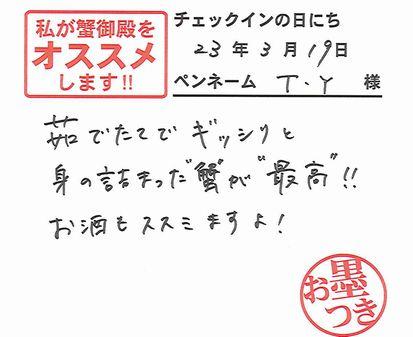 私が蟹御殿を
オススメ
します!!
チェックインの日にち
23年3月19日
ペンネーム T・Y 様
茹でたてでギッシリと
身の詰まった"蟹"が"最高"!!
お酒もススミますよ!
お墨つき